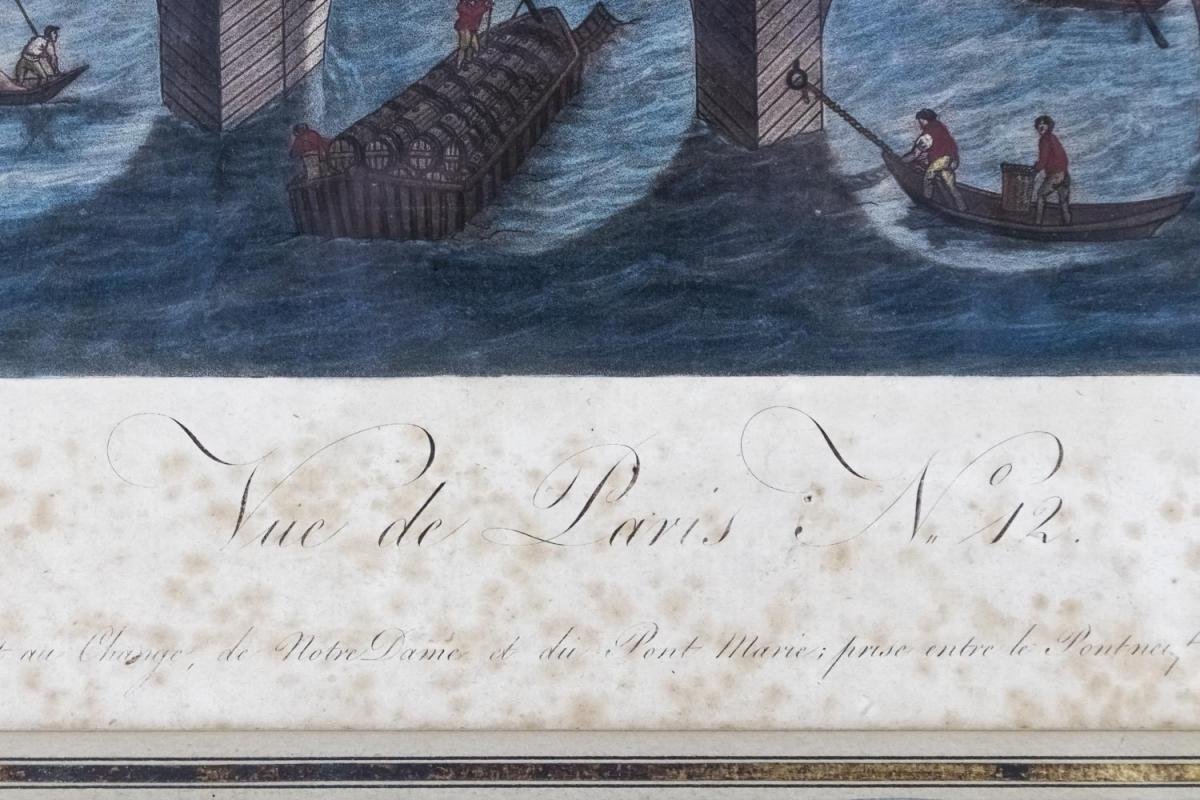 Vue de Paris : N.º 12.
t au Change, de Notre Dame et du Pont Marie; prise entre le Pontneuf